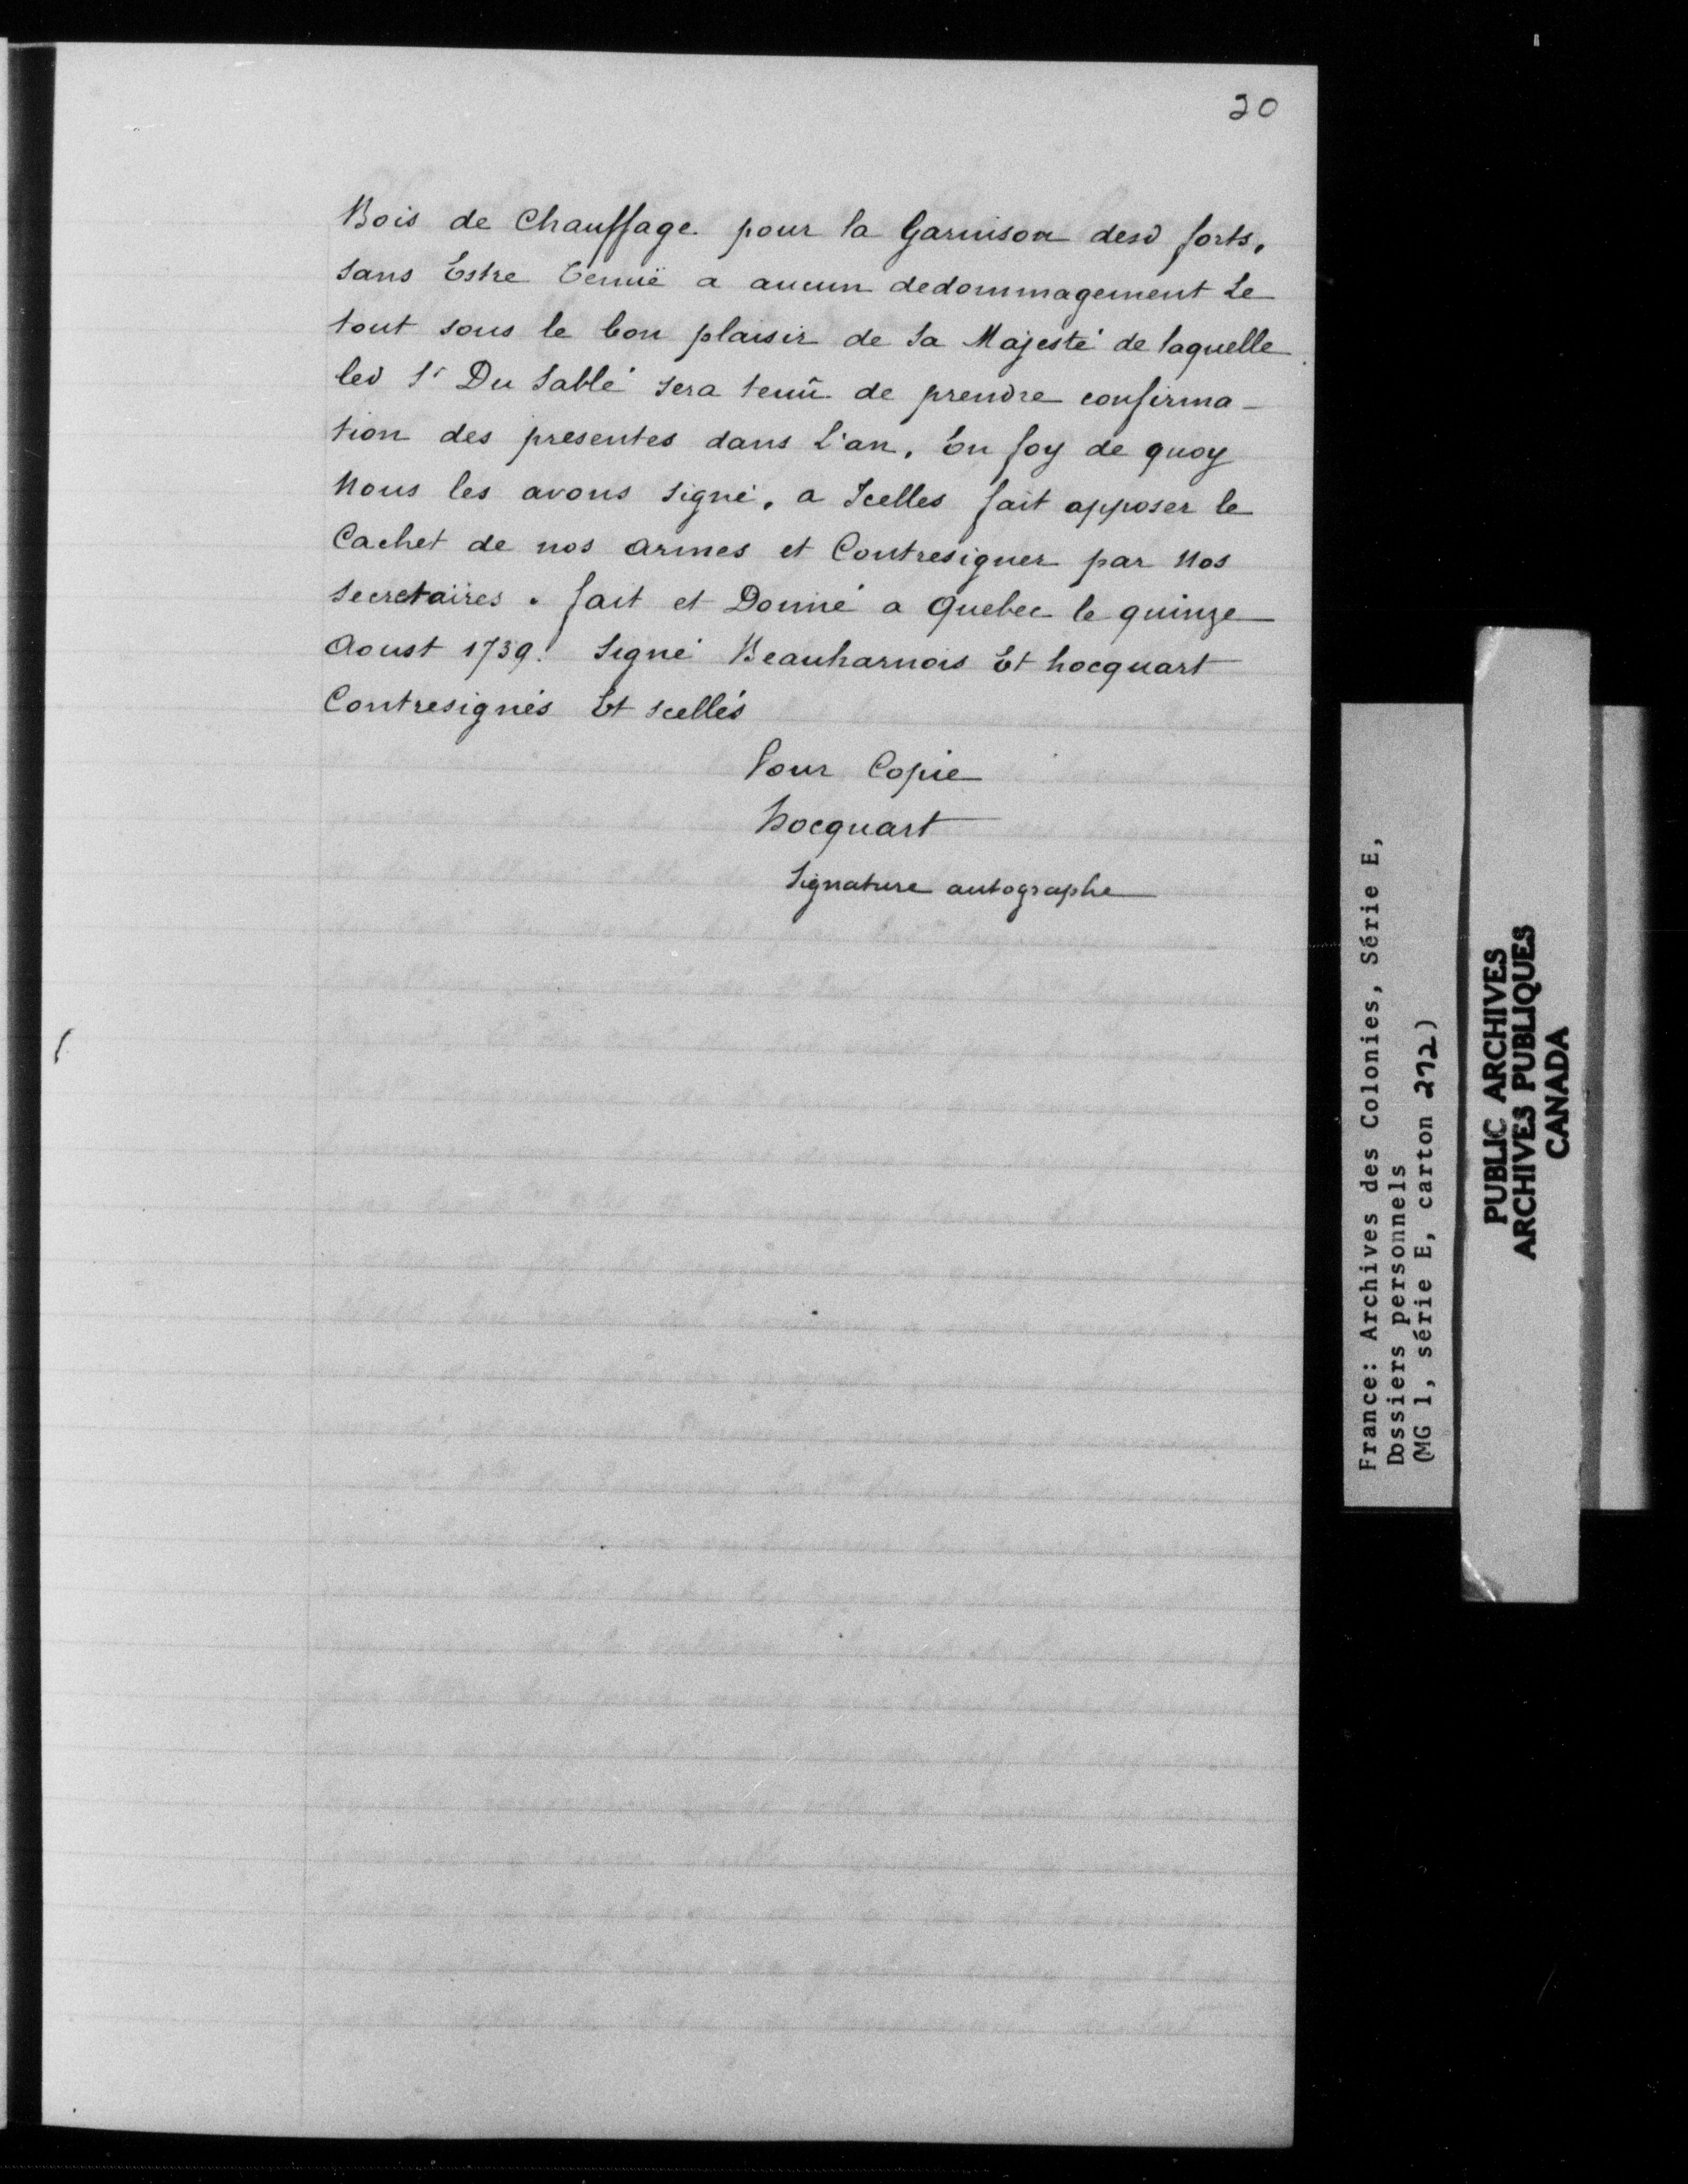 20
Bois de Chauffage pour la Garnison desd forts,
sans Estre Tenuë a aucun dedommagement Le
tout sous le bon plaisir de Sa Majesté de laquelle
led Sr Du Sablé sera tenû de prendre confirma-
tion des presentes dans L'an, En foy de quoy
Nous les avons Signé, a Icelles fait apposer le
Cachet de nos armes et Contresigner par Nos
Secretaires. fait et Donné a Quebec le quinze
Aoust 1739. Signé Beauharnois Et hocquart
Contresignés Et scellés
Pour Copie
hocquart
Signature autographe
France: Archives des Colonies, Série E,
Dossiers personnels
(MG 1, série E, carton 272)
PUBLIC ARCHIVES
ARCHIVES PUBLIQUES
CANADA